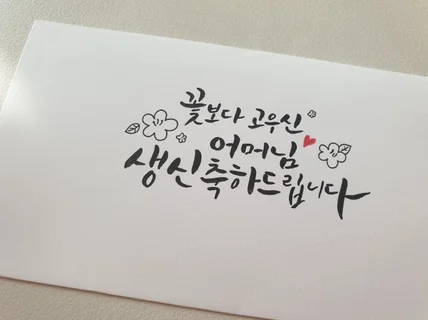 꽃보다 고우신
어머님
생신축하드립니다